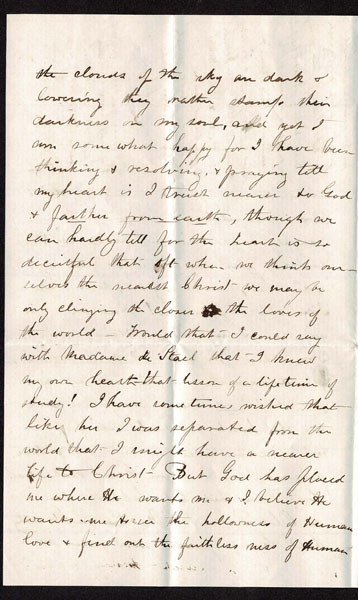 the clouds of the sky are dark &
lowering they rather stamp their
darkness on my soul, and yet I
am some what happy for I have been
thinking & resolving, & praying till
my heart is I trust nearer to God
& farther from earth, though we
can hardly tell for the heart is so
deceitful that oft when we think our
selves the nearest Christ we may be
only clinging the closer to the loves of
the world – Would that I could say
with Madame de Stael that I knew
my own heart – that lesson of a lifetime of
study! I have sometimes wished that
like her I was separated from the
world that I might have a nearer
life to Christ – But God has placed
me where He wants me & I believe He
wants me to see the hollowness of Human
love & find out the faithless ness of Human